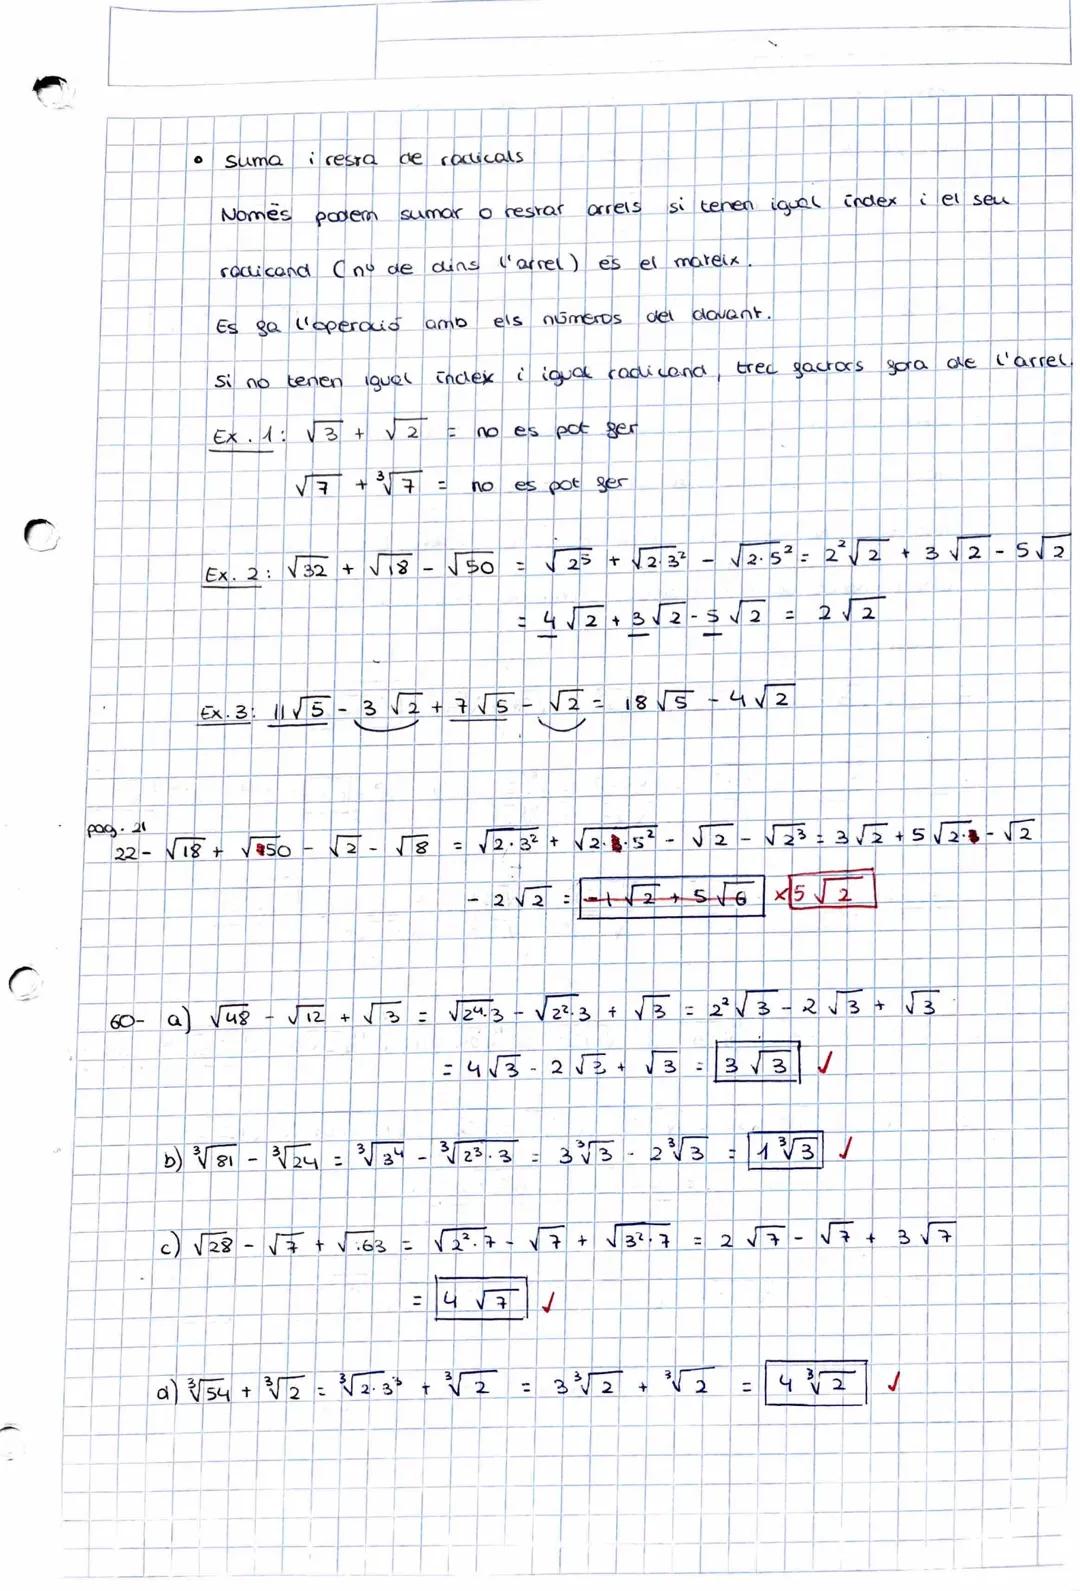 • suma i resta de radicals
Només podem sumar o restar arrels si tenen igual índex i el seu
radicand (nº de dins l'arrel) és el mateix.
Es fa l'operació amb els números del davant.
Si no tenen igual índex i igual radicand, trec factors fora de l'arrel.
Ex. 1: √3 + √2 = no es pot fer
√7 + ³√7 = no es pot fer
Ex. 2: √32 + √18 - √50 = √2⁵ + √2·3² - √2·5² = 2²√2 + 3√2 - 5√2
= 4√2 + 3√2 - 5√2 = 2√2
Ex. 3: 11√5 - 3√2 + 7√5 - √2 = 18√5 - 4√2
pag. 21
22- √18 + √50 - √2 - √8 = √2·3² + √2·5² - √2 - √2³ = 3√2 + 5√2 - √2
- 2√2 = -1√2 + 5√6 x 5√2
60- a) √48 - √12 + √3 = √2⁴·3 - √2²·3 + √3 = 2²√3 - 2√3 + √3
= 4√3 - 2√3 + √3 = 3√3 ✓
b) ³√81 - ³√24 = ³√3⁴ - ³√2³·3 = 3³√3 - 2³√3 = 1³√3 ✓
c) √28 - √7 + √63 = √2²·7 - √7 + √3²·7 = 2√7 - √7 + 3√7
= 4√7 ✓
d) ³√54 + ³√2 = ³√2·3³ + ³√2 = 3³√2 + ³√2 = 4³√2 ✓